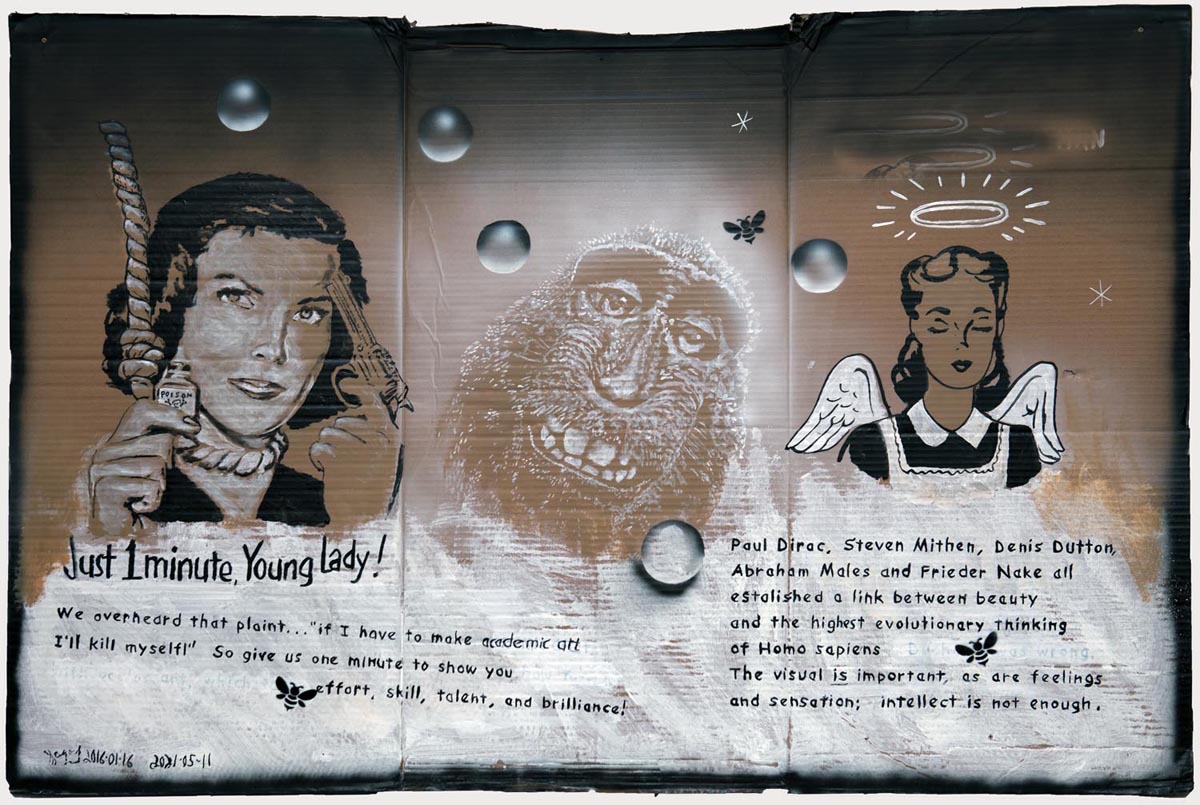 POISON
Just 1 minute, Young Lady!
We overheard that plaint... "if I have to make academic art
I'll kill myself!" So give us one minute to show you
effort, skill, talent, and brilliance!
2016·01·16 2021·05·11
Paul Dirac, Steven Mithen, Denis Dutton,
Abraham Males and Frieder Nake all
estalished a link between beauty
and the highest evolutionary thinking
of Homo sapiens as wrong,
The visual is important, as are feelings
and sensation; intellect is not enough.